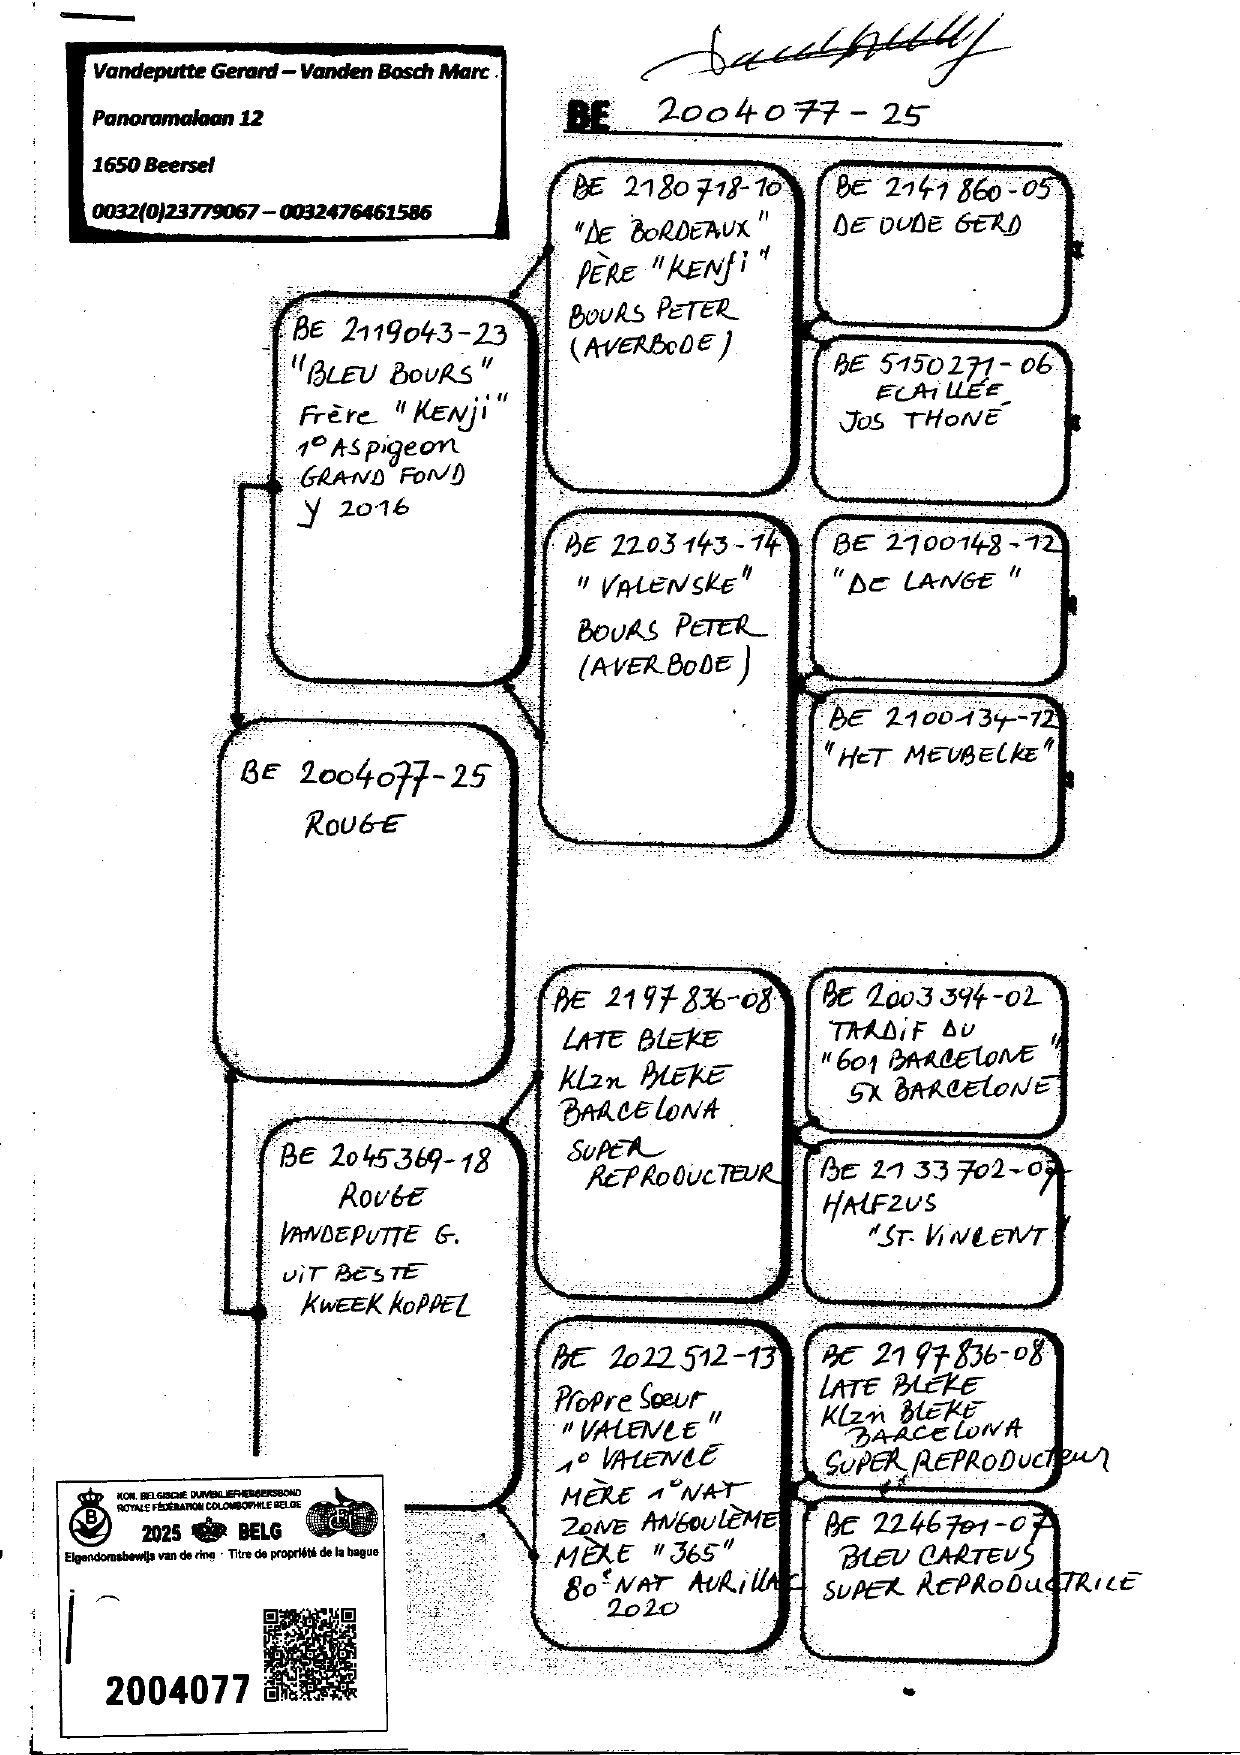 Vandeputte Gerard – Vanden Bosch Marc
Panoramalaan 12
1650 Beersel
0032(0)23779067 – 0032476461586
BE 2004077-25
BE 2119043-23
"BLEU BOURS"
Frère "KENji"
1° ASpigeon
GRAND FOND
Y 2016
BE 2180718-10
"DE BORDEAUX"
PÈRE "KENji"
BOURS PETER
(AVERBODE)
BE 2141860-05
DE OUDE GERD
BE 5150271-06
ECAILLÉE
JOS THONÉ
BE 2203143-14
"VALENSKE"
BOURS PETER
(AVERBODE)
BE 2100148-12
"DE LANGE"
BE 2100134-12
"HET MEUBELKE"
BE 2004077-25
ROUGE
BE 2045369-18
ROUGE
VANDEPUTTE G.
UIT BESTE
KWEEKKOPPEL
BE 2197836-08
LATE BLEKE
KLzn BLEKE
BARCELONA
SUPER
REPRODUCTEUR
BE 2003394-02
TARDIF DU
"601 BARCELONE"
5X BARCELONE
BE 2133702-07
HALFZUS
"ST. VINCENT
BE 2022512-13
Propre Sœur
"VALENCE"
1° VALENCE
MÈRE 1° NAT
ZONE ANGOULÈME
MÈRE "365"
80° NAT AURILLAC
2020
BE 2197836-08
LATE BLEKE
KLzn BLEKE
BARCELONA
SUPER REPRODUCTEUR
BE 2246701-07
BLEU CARTEUS
SUPER REPRODUCTRICE
KON. BELGISCHE DUIVENLIEFHEBBERSBOND
ROYALE FÉDÉRATION COLOMBOPHILE BELGE
2025 BELG
Eigendomsbewijs van de ring · Titre de propriété de la bague
2004077